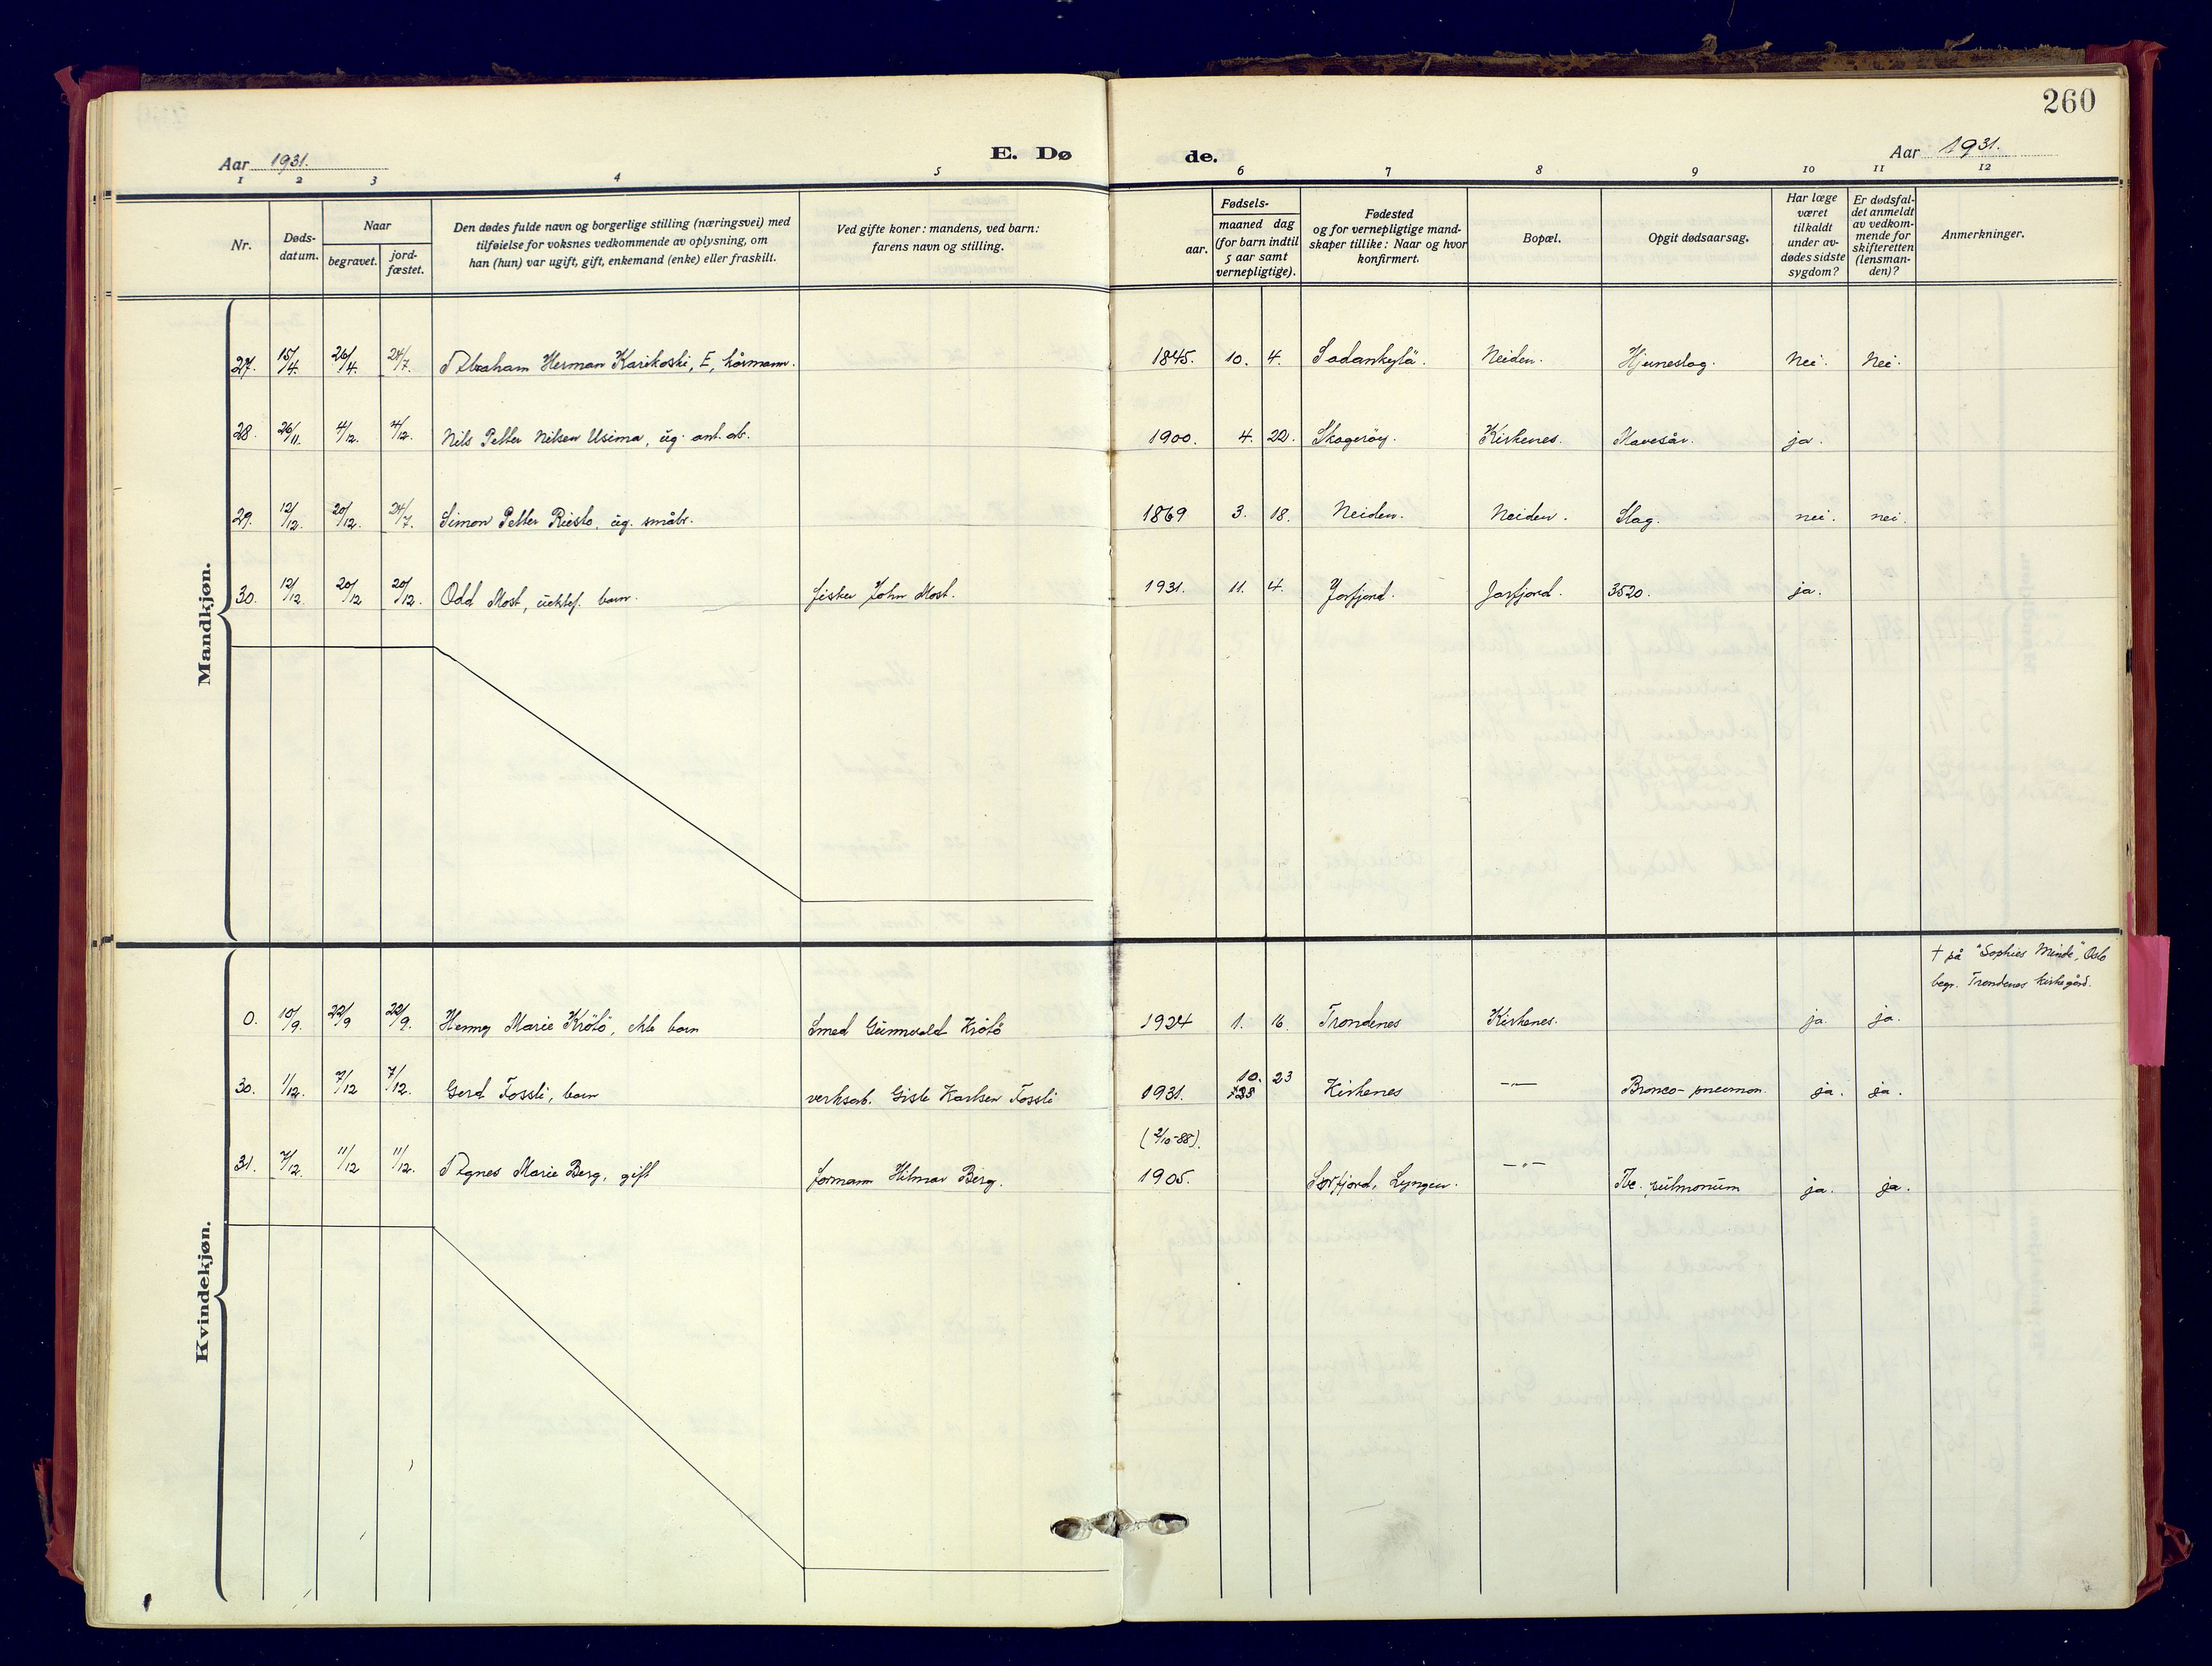 260
Aar 1931.
E. Dø
de.
Aar 1931.
1 2 3 4 5 6 7 8 9 10 11 12
Nr.
Døds-
datum.
Naar
begravet.
jord-
fæstet.
Den dødes fulde navn og borgerlige stilling (næringsvei) med
tilføielse for voksnes vedkommende av oplysning, om
han (hun) var ugift, gift, enkemand (enke) eller fraskilt.
Ved gifte koner: mandens, ved barn:
farens navn og stilling.
Fødsels-
aar.
maaned dag
(for barn indtil
5 aar samt
vernepligtige).
Fødested
og for vernepligtige mand-
skaper tillike: Naar og hvor
konfirmert.
Bopæl.
Opgit dødsaarsag.
Har læge
været
tilkaldt
under av-
dødes sidste
sygdom?
Er dødsfal-
det anmeldt
av vedkom-
mende for
skifteretten
(lensman-
den)?
Anmerkninger.
Mandkjøn.
27. 15/4. 26/4. 24/7. Abraham Herman Karikoski, E, kårmann. 1845. 10. 4. Sodankylä. Neiden. Hjerneslag. Nei. Nei.
28. 26/11. 4/12. 4/12. Nils Petter Nilsen Usima, ug. anl. arb. 1900. 4. 22. Skogerøy. Kirkenes. Havesår. ja.
29. 12/12. 20/12. 24/7. Simon Petter Riesto, ug. småbr. 1869 3. 18. Neiden. Neiden. Slag. nei. nei.
30. 12/12. 20/12 20/12. Odd Most, uektef. barn. fisker John Most. 1931. 11. 4. Jarfjord. Jarfjord. 3520. ja.
Kvindekjøn.
† på "Sophies Minde", Oslo
begr. Trondenes kirkegård.
0. 10/9. 22/9 22/9. Henny Marie Krötö, ekte barn Smed Gunnvald Krötö 1924 1. 16. Trondenes Kirkenes. ja. ja.
30. 1/12. 7/12 7/12. Gerd Fossli, barn verksarb. Gisle Karlsen Fossli 1931. 10. 23 Kirkenes —"— Bronco-pneumon. ja. ja.
(2/10-88).
31. 7/12. 11/12 11/12. Agnes Marie Berg, gift formann Hilmar Berg. 1905. Sørfjord, Lyngen. —"— Tbc. pulmonum ja. ja.